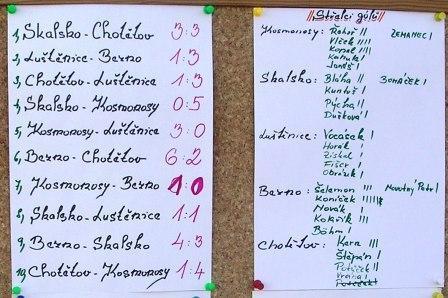 1, Skalsko - Chotětov 3:3
2, Luštěnice - Bezno 1:3
3, Chotětov - Luštěnice 1:3
4, Skalsko - Kosmonosy 0:5
5, Kosmonosy - Luštěnice 3:0
6, Bezno - Chotětov 6:2
7, Kosmonosy - Bezno 1:0
8, Skalsko - Luštěnice 1:1
9, Bezno - Skalsko 4:3
10, Chotětov - Kosmonosy 1:4
Střelci gólů
Kosmonosy: Řehoř II ZEMANEC I
Vlček IIII
Kopal IIII
Janeš I
Skalsko: Bláha II BOHÁČEK I
Kuntoš I
Pýcha II
Dušková I
Luštěnice: Vocásek I
Horák I
Získal I
Fišer I
Obrázek I
Bezno: Šelemon III Novotný Petr I
Koníček IIIII
Novák I
Kokrík III
Böhm I
Chotětov: Kára III
Štěpán I
Potůček I
Vrána I